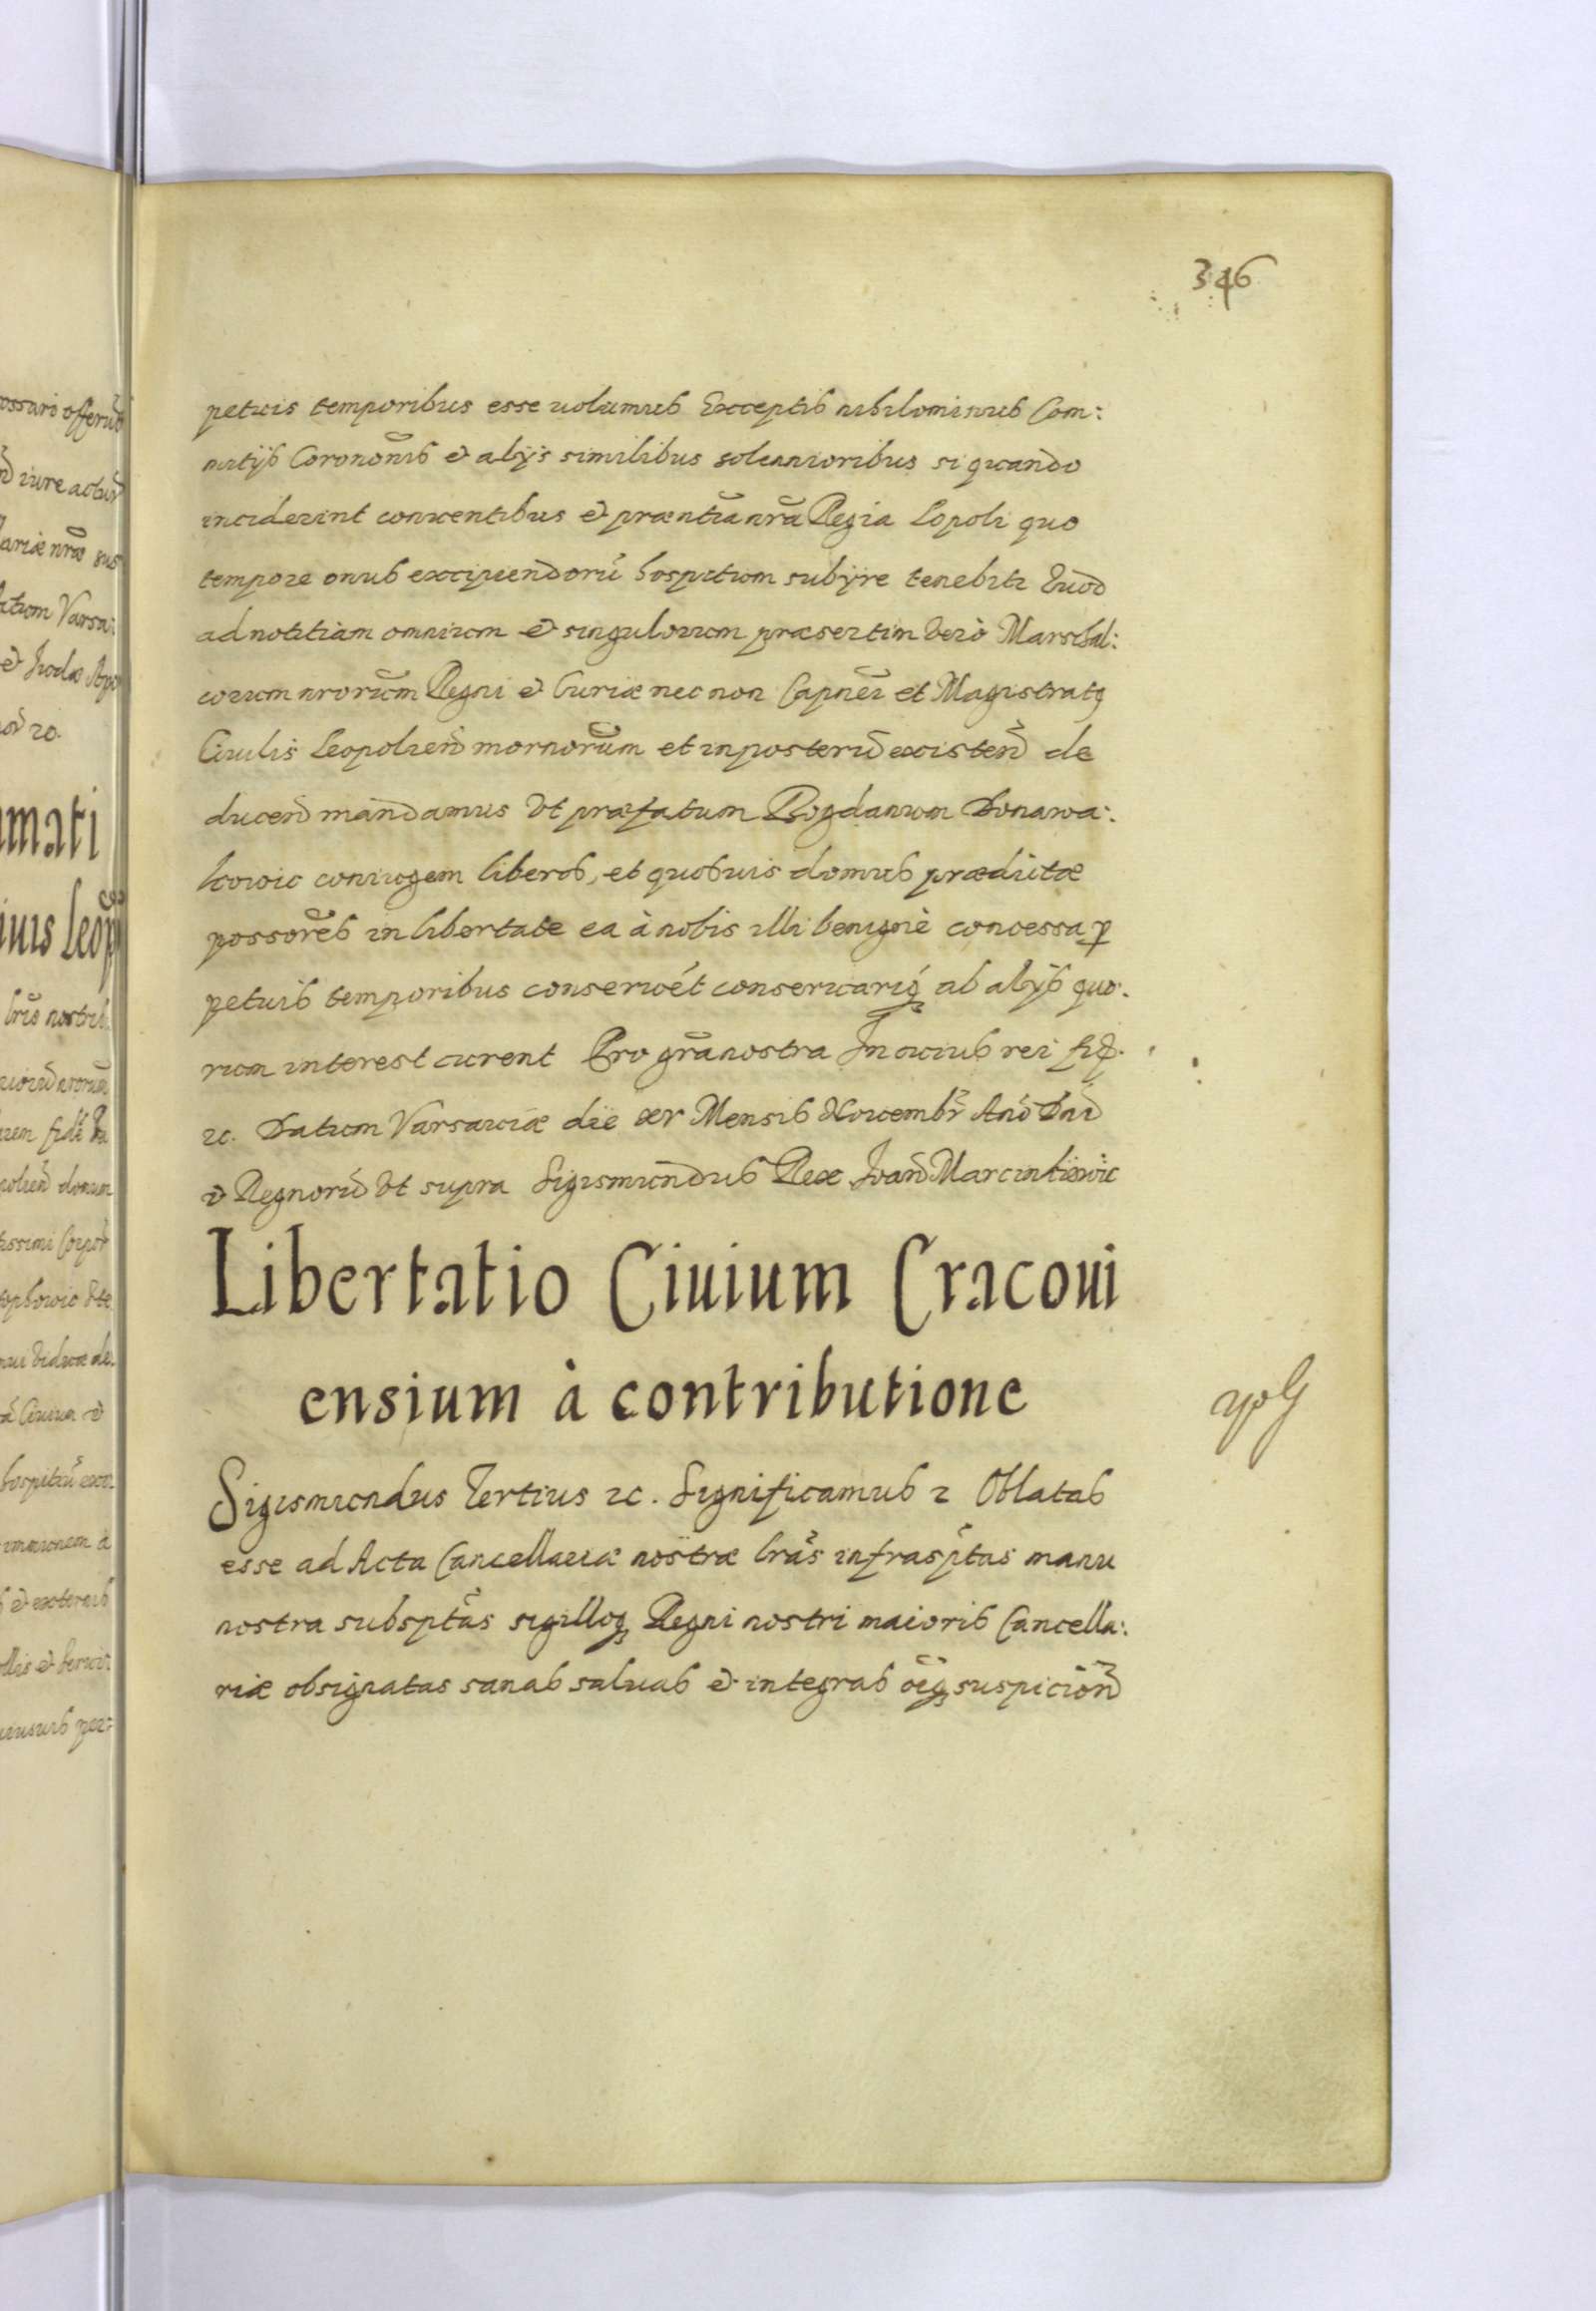 346
petuis temporibus esse uolumus Exceptis nihilominus Com:
mitijs Corononis̃ et alijs similibus solennioribus si quando
inciderint conuentibus et præntia nrã Regia Lopoli quo
tempore onus excipiendorũ hospitum subijre tenebitr Quod
ad notitiam omnium et singulorum præsertim verò Marschal:
corum nrorum Regni et Curiæ nec non Capnei et Magistratq
Ciuilis Leopolien̄ mornorum et in posterũ existen̄ de
ducen̄ mandamus vt præfatum Bogdanum Donawa:
kowic coniugem liberos, et quosuis domus prædictæ
possores in libertate ea à nobis illi benignè concessa p
petuis temporibus conseruẽt conseruariq; ab alijs quo:
rum interest curent Pro grã nostra In cuius rei fid.
zc. Datum Varsauiæ die xv Mensis Nouembr Anõ Dni
et Regnorũ vt supra Sigismundus Rex Joan̄ Marcinkiewic
Libertatio Ciuium Cracoui
ensium à contributione
Sigismundus Tertius zc. Significamus z Oblatas
esse ad Acta Cancellariæ nostræ lrãs infrasptas manu
nostra subsptas sigilloq; Regni nostri maioris Cancella:
riæ obsignatas sanas saluas et integras oĩq; suspicion̄
ossari offerũt
iure actur
lariæ nræ sus
atum Varsa:
et Iudæ Apo
20.
mati
iuis Leopo
lris nostris
rem fidẽ
polien̄ domum
issimi Corpor
ophowic
viduæ de
Ciuium et
hospitũ exci
immunem a
et externis
llis et
per: